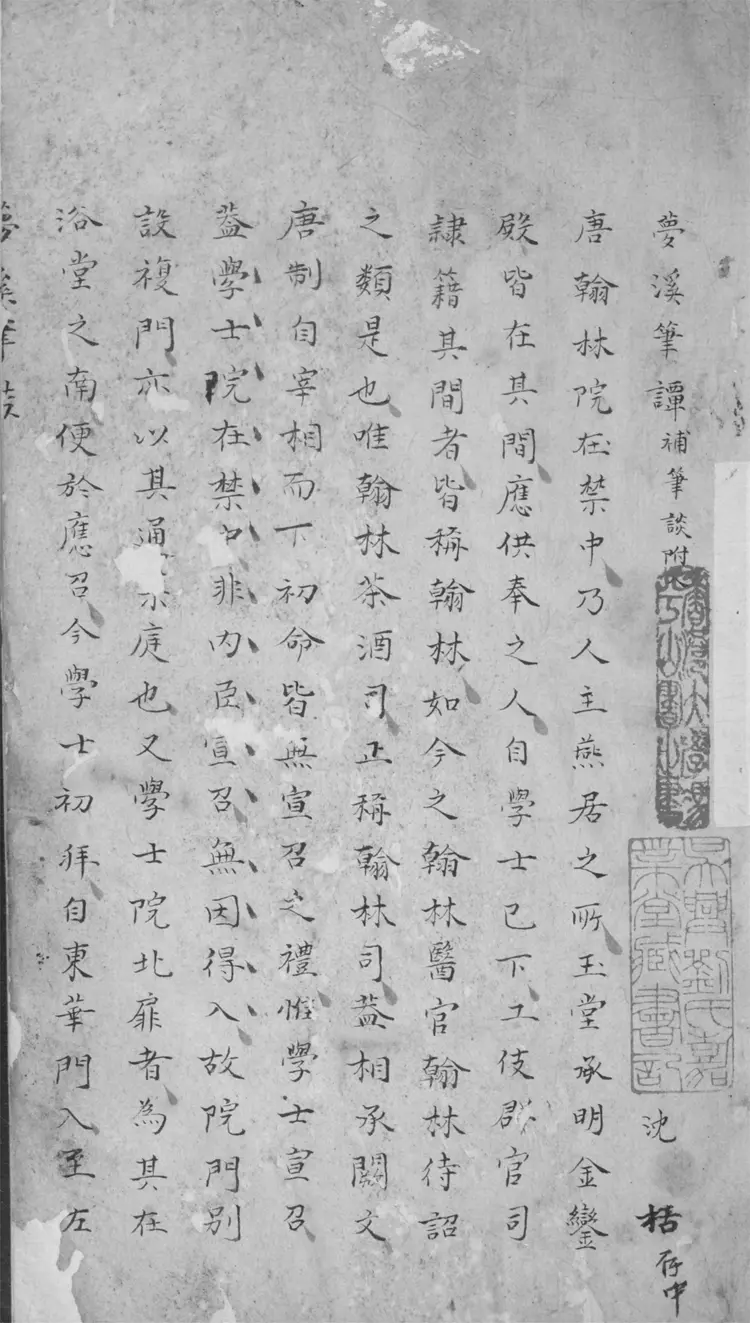 夢溪筆譚補筆談附 沈括存中
香港大學馮平山圖書館
吳興劉氏嘉業堂藏書記
唐翰林院在禁中乃人主燕居之所玉堂承明金鑾
殿皆在其間應供奉之人自學士已下工伎群官司
隷籍其間者皆稱翰林如今之翰林醫官翰林待詔
之類是也唯翰林茶酒司止稱翰林司蓋相承闕文
唐制自宰相而下初命皆無宣召之禮惟學士宣召
蓋學士院在禁中非內臣宣召無因得入故院門別
設複門亦以其通禁庭也又學士院北扉者為其在
浴堂之南便於應召今學士初拜自東華門入至左